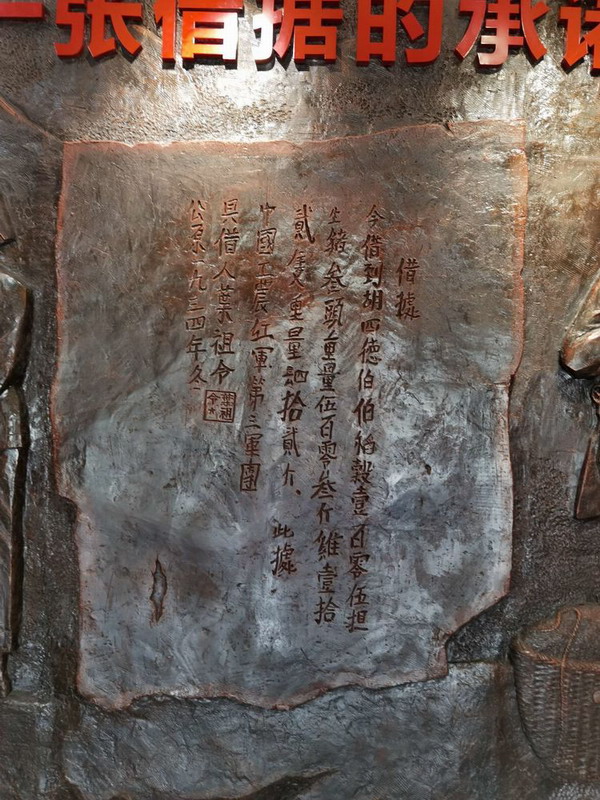 一张借据的承诺
借據
今借到胡四德伯伯稻榖壹百零伍担
生猪叁頭重量伍百零叁斤雞壹拾
貳隻重量肆拾貳斤、此據
中國工農红軍第三軍團
具借人葉祖令
葉祖令
公系一九三四年冬